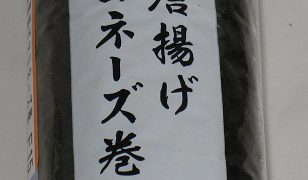 唐揚げ
ネーズ巻